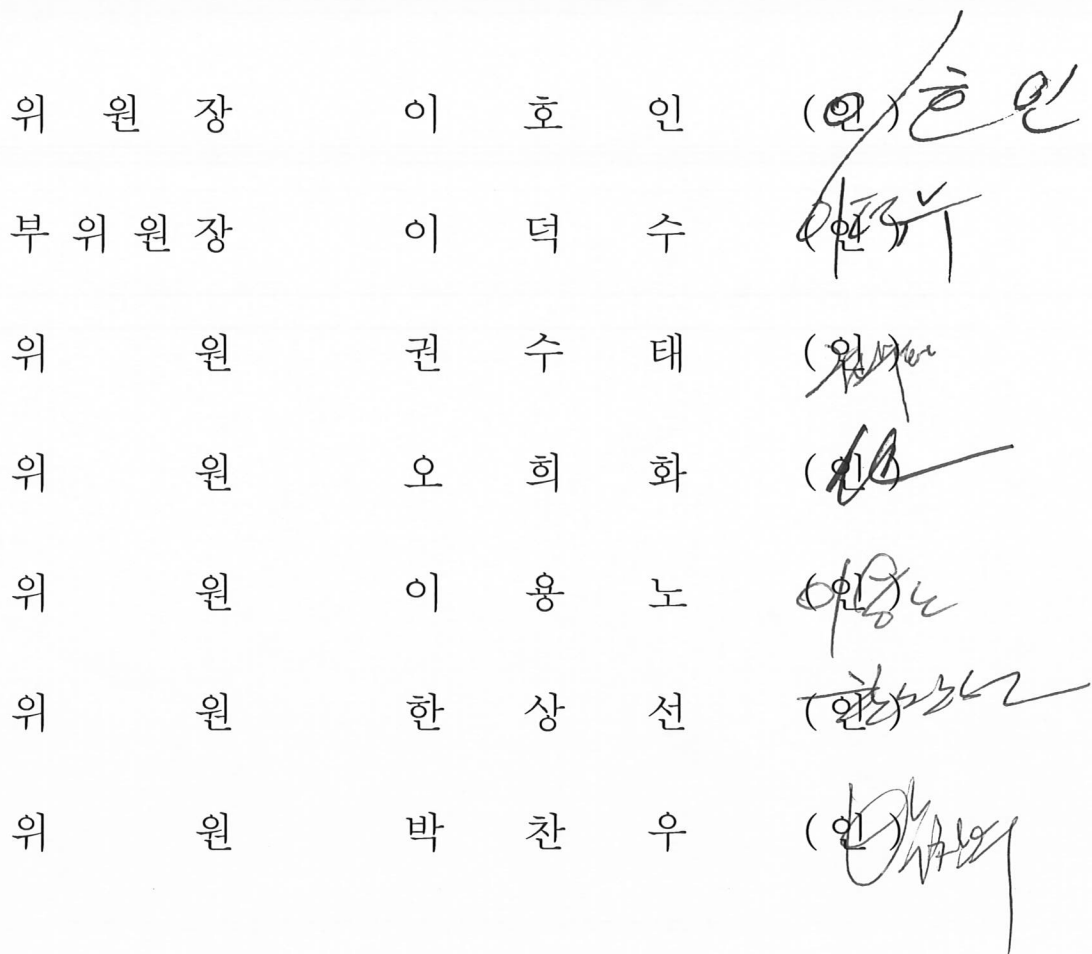 위 원 장 이 호 인 (인) 이호인
부 위 원 장 이 덕 수 (인) 이덕수
위 원 권 수 태 (인)
위 원 오 희 화 (인)
위 원 이 용 노 (인) 이용노
위 원 한 상 선 (인)
위 원 박 찬 우 (인)